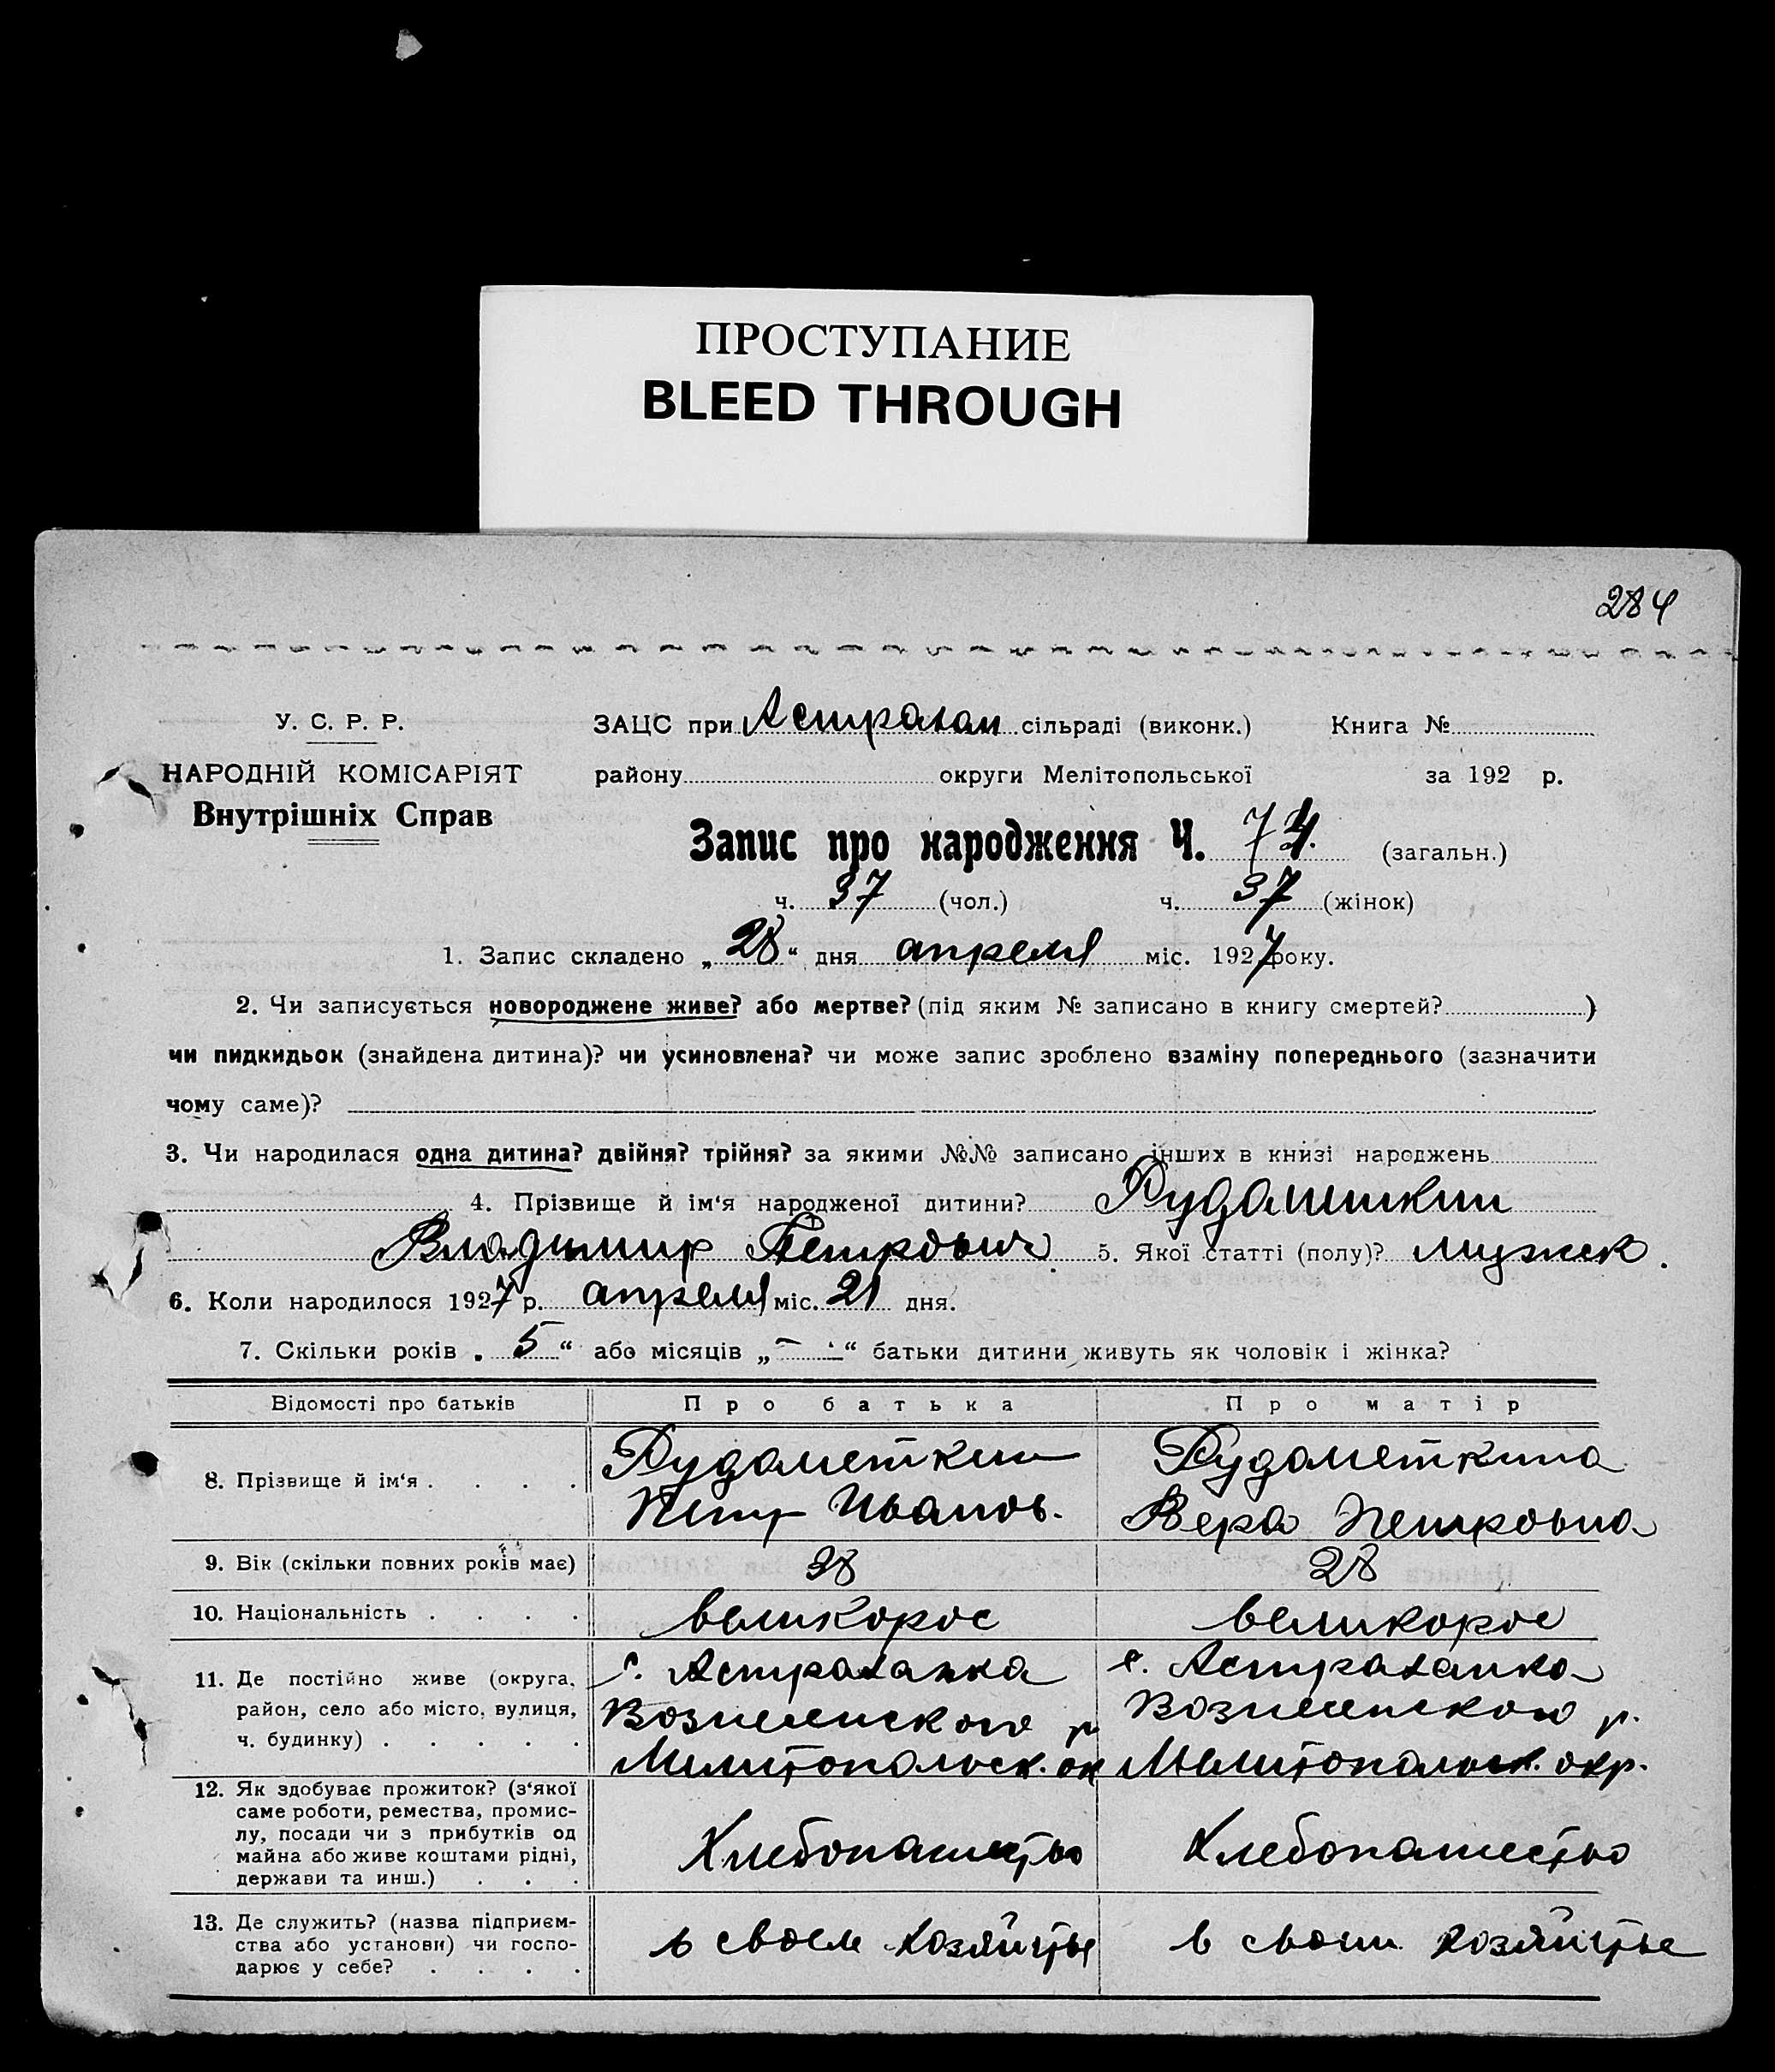 ПРОСТУПАНИЕ
BLEED THROUGH
284
У. С. Р. Р. ЗАЦС при Астрахан сільраді (виконк.) Книга №
НАРОДНІЙ КОМІСАРІЯТ району округи Мелітопольської за 192 р.
Внутрішніх Справ
Запис про народження Ч. 74. (загальн.)
ч. 37 (чол.) ч. 37 (жінок)
1. Запис складено „28“ дня апреля міс. 1927 року.
2. Чи записується новороджене живе? або мертве? (під яким № записано в книгу смертей? )
чи пидкидьок (знайдена дитина)? чи усиновлена? чи може запис зроблено взаміну попереднього (зазначити
чому саме)?
3. Чи народилася одна дитина? двійня? трійня? за якими №№ записано інших в книзі народжень
4. Прізвище й ім‘я народженої дитини? Рудаметкин
Владимир Петрович 5. Якої статті (полу)? мужск.
6. Коли народилося 1927 р. апреля міс. 21 дня.
7. Скільки років „5“ або місяців „—“ батьки дитини живуть як чоловік і жінка?
Відомості про батьків Про батька Про матір
8. Прізвище й ім‘я Рудометкин Рудометкина
Петр Иванов. Вера Петровна
9. Вік (скільки повних років має) 38 28
10. Національність великорос великорос
11. Де постійно живе (округа, с. Астраханка с. Астраханка
район, село або місто, вулиця, Вознесенского р Вознесенского р.
ч. будинку) Мелитопольск. ок Мелитопольск. окр.
12. Як здобуває прожиток? (з‘якої
саме роботи, ремества, промис-
лу, посади чи з прибутків од
майна або живе коштами рідні, Хлебопашество Хлебопашество
держави та инш.)
13. Де служить? (назва підприєм-
ства або установи) чи госпо- в своем хозяйстве в своем хозяйстве
дарює у себе?